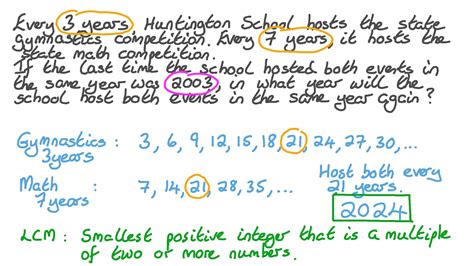 Every 3 years Huntington School hosts the state
gymnastics competition. Every 7 years, it hosts the
state math competition.
If the last time the school hosted both events in
the same year was 2003, in what year will the
school host both events in the same year again?
Gymnastics : 3, 6, 9, 12, 15, 18, 21, 24, 27, 30, ...
3years
Math : 7, 14, 21, 28, 35, ...
7years
Host both every
21 years.
2024
LCM : Smallest positive integer that is a multiple
of two or more numbers.